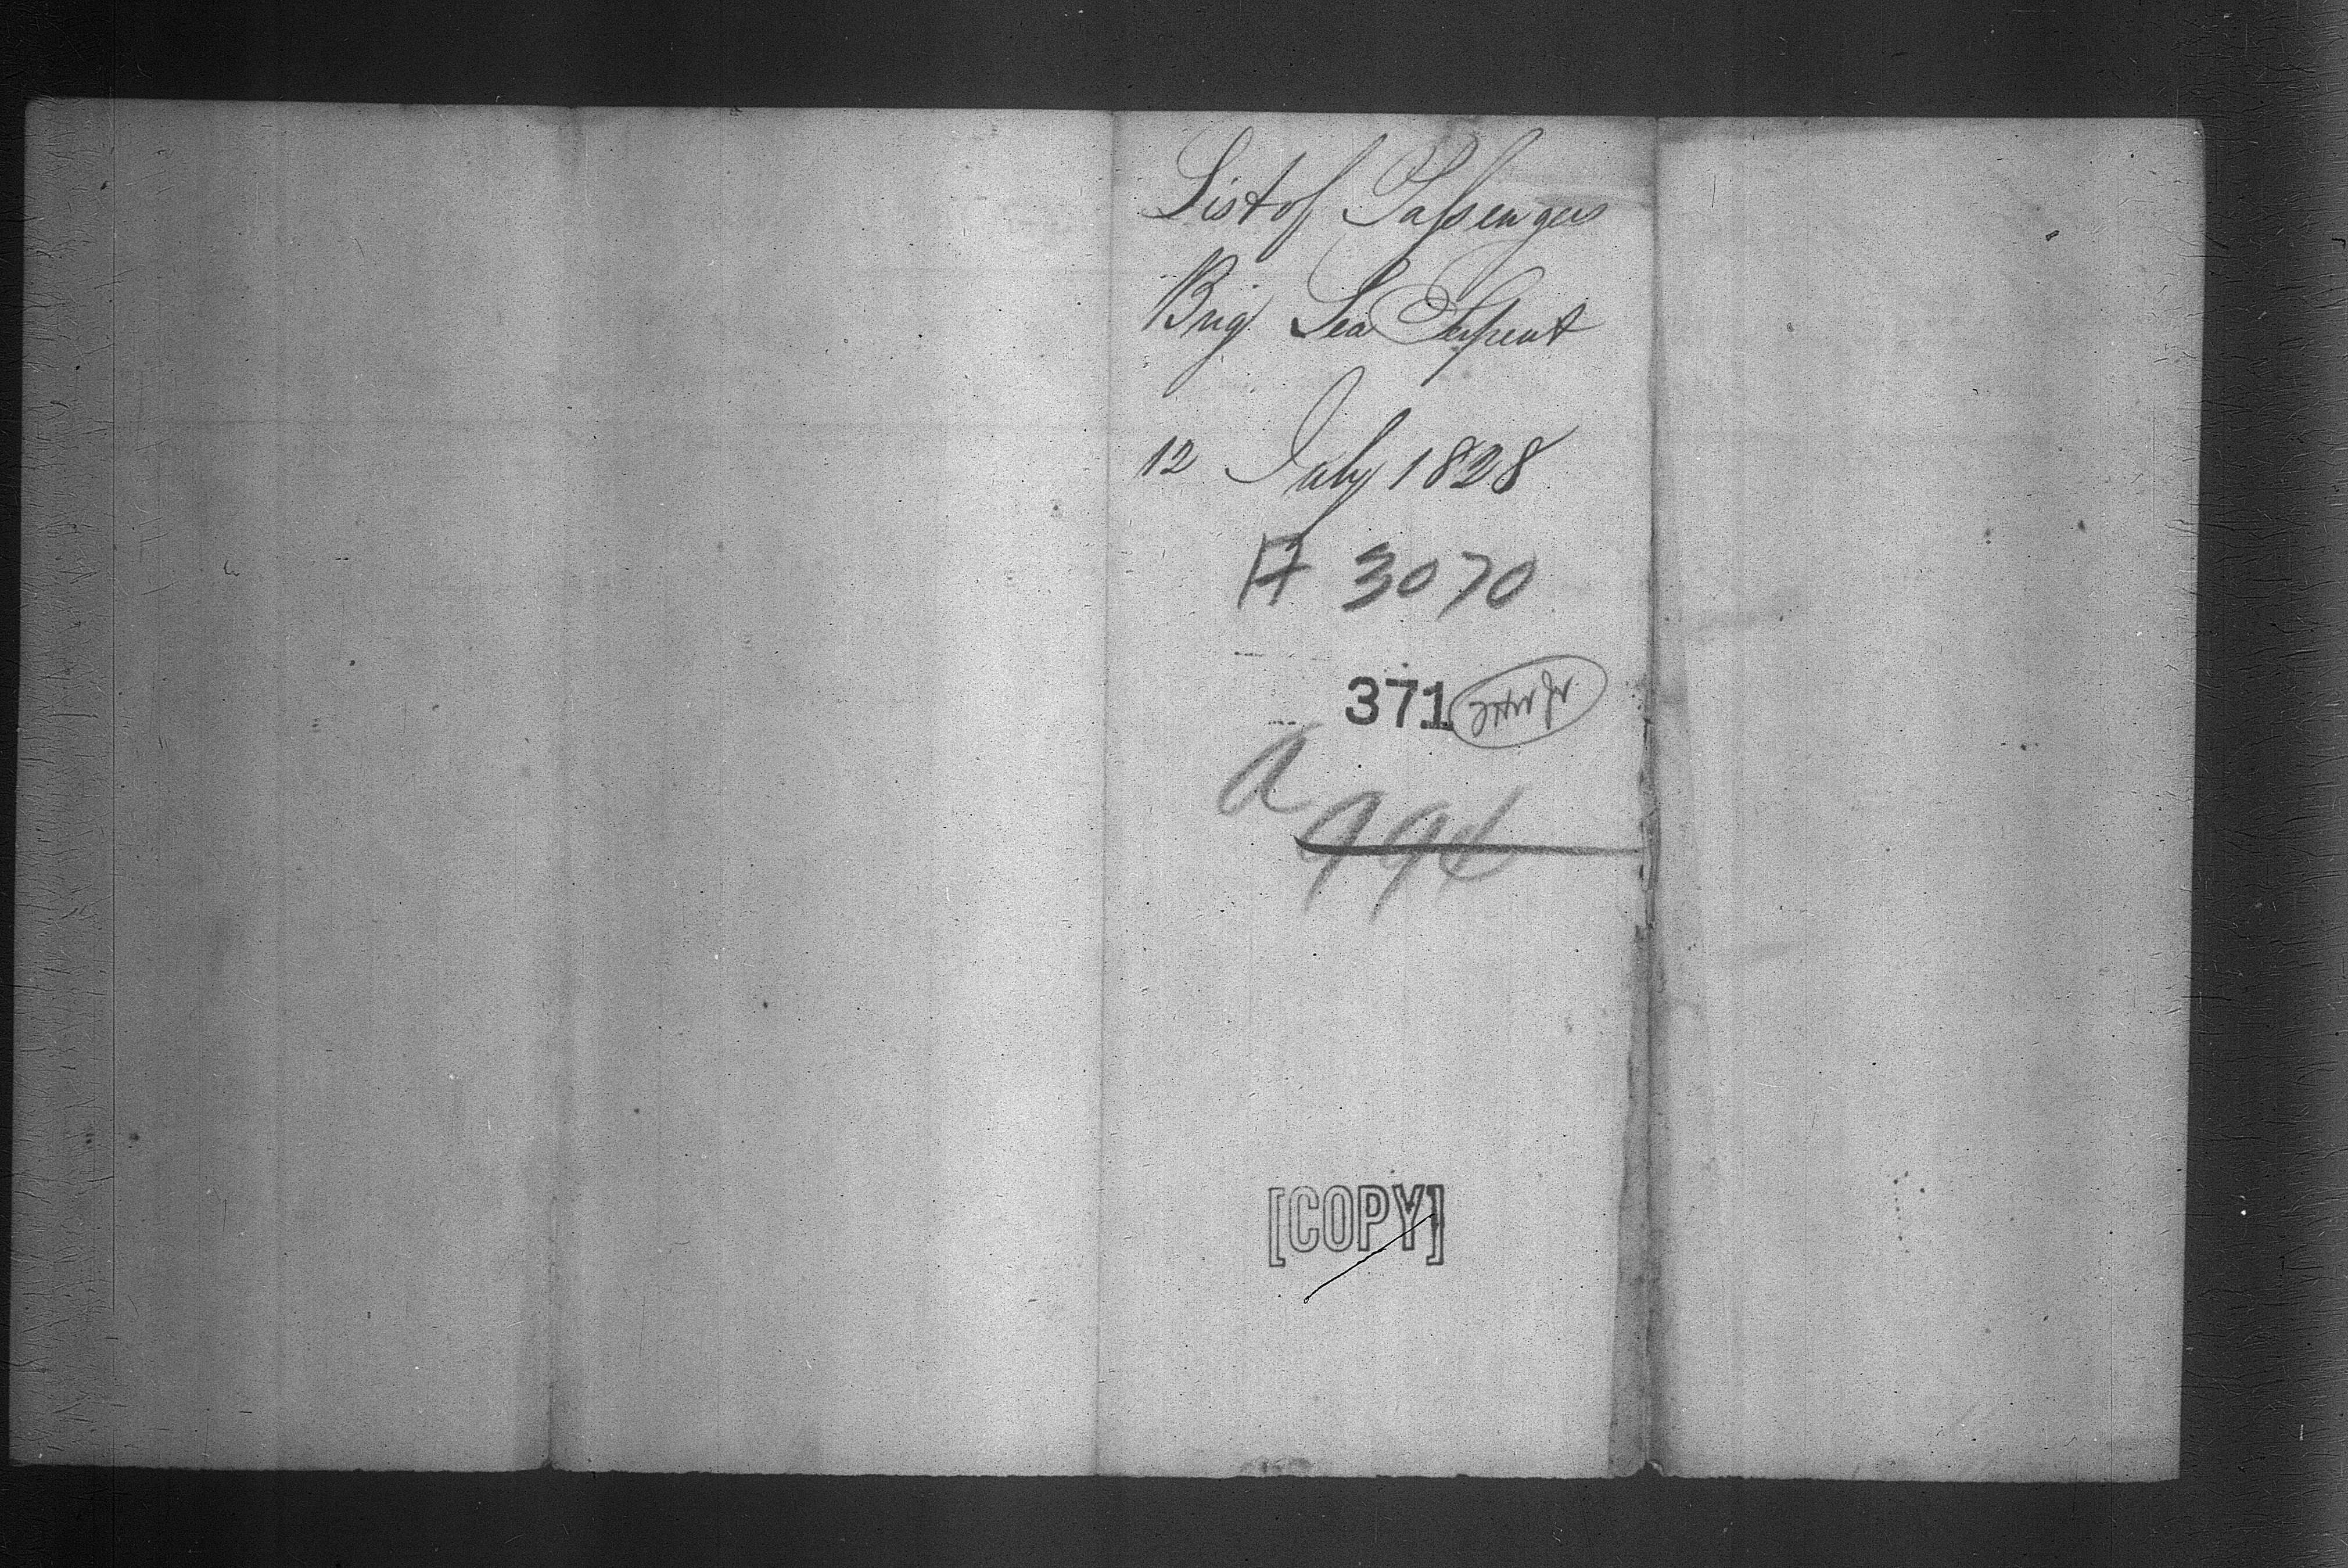 List of Passengers
Brig Sea Serpent
12 July 1828
A 3070
371
a
994
[COPY]